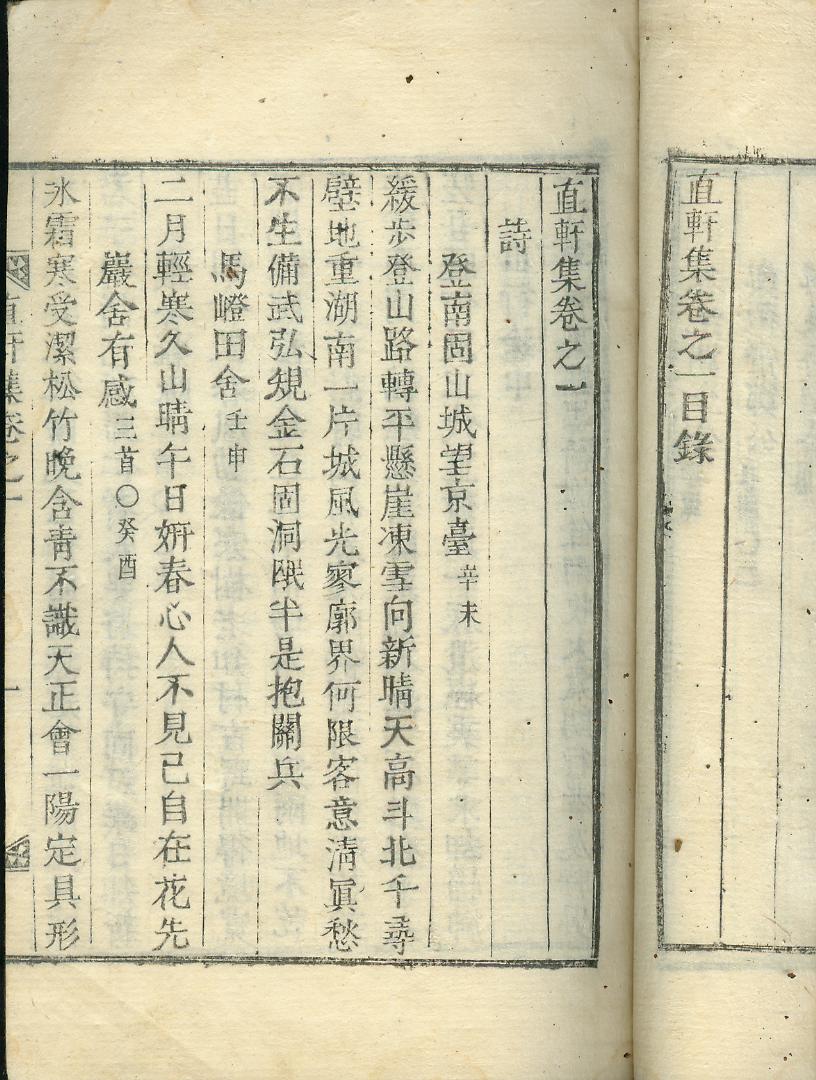 直軒集卷之一目錄
直軒集卷之一
詩
登南固山城望京臺 辛未
緩步登山路轉平懸崖凍雪向新晴天高斗北千尋
壁地重湖南一片城風光寥廓界何限客意淸冥愁
不生備武弘規金石固洞氓半是抱關兵
馬嶝田舍 壬申
二月輕寒久山晴午日姸春心人不見已自在花先
巖舍有感 三首○癸酉
氷霜寒受潔松竹晩含靑不識天正會一陽定具形
直軒集卷之一
一